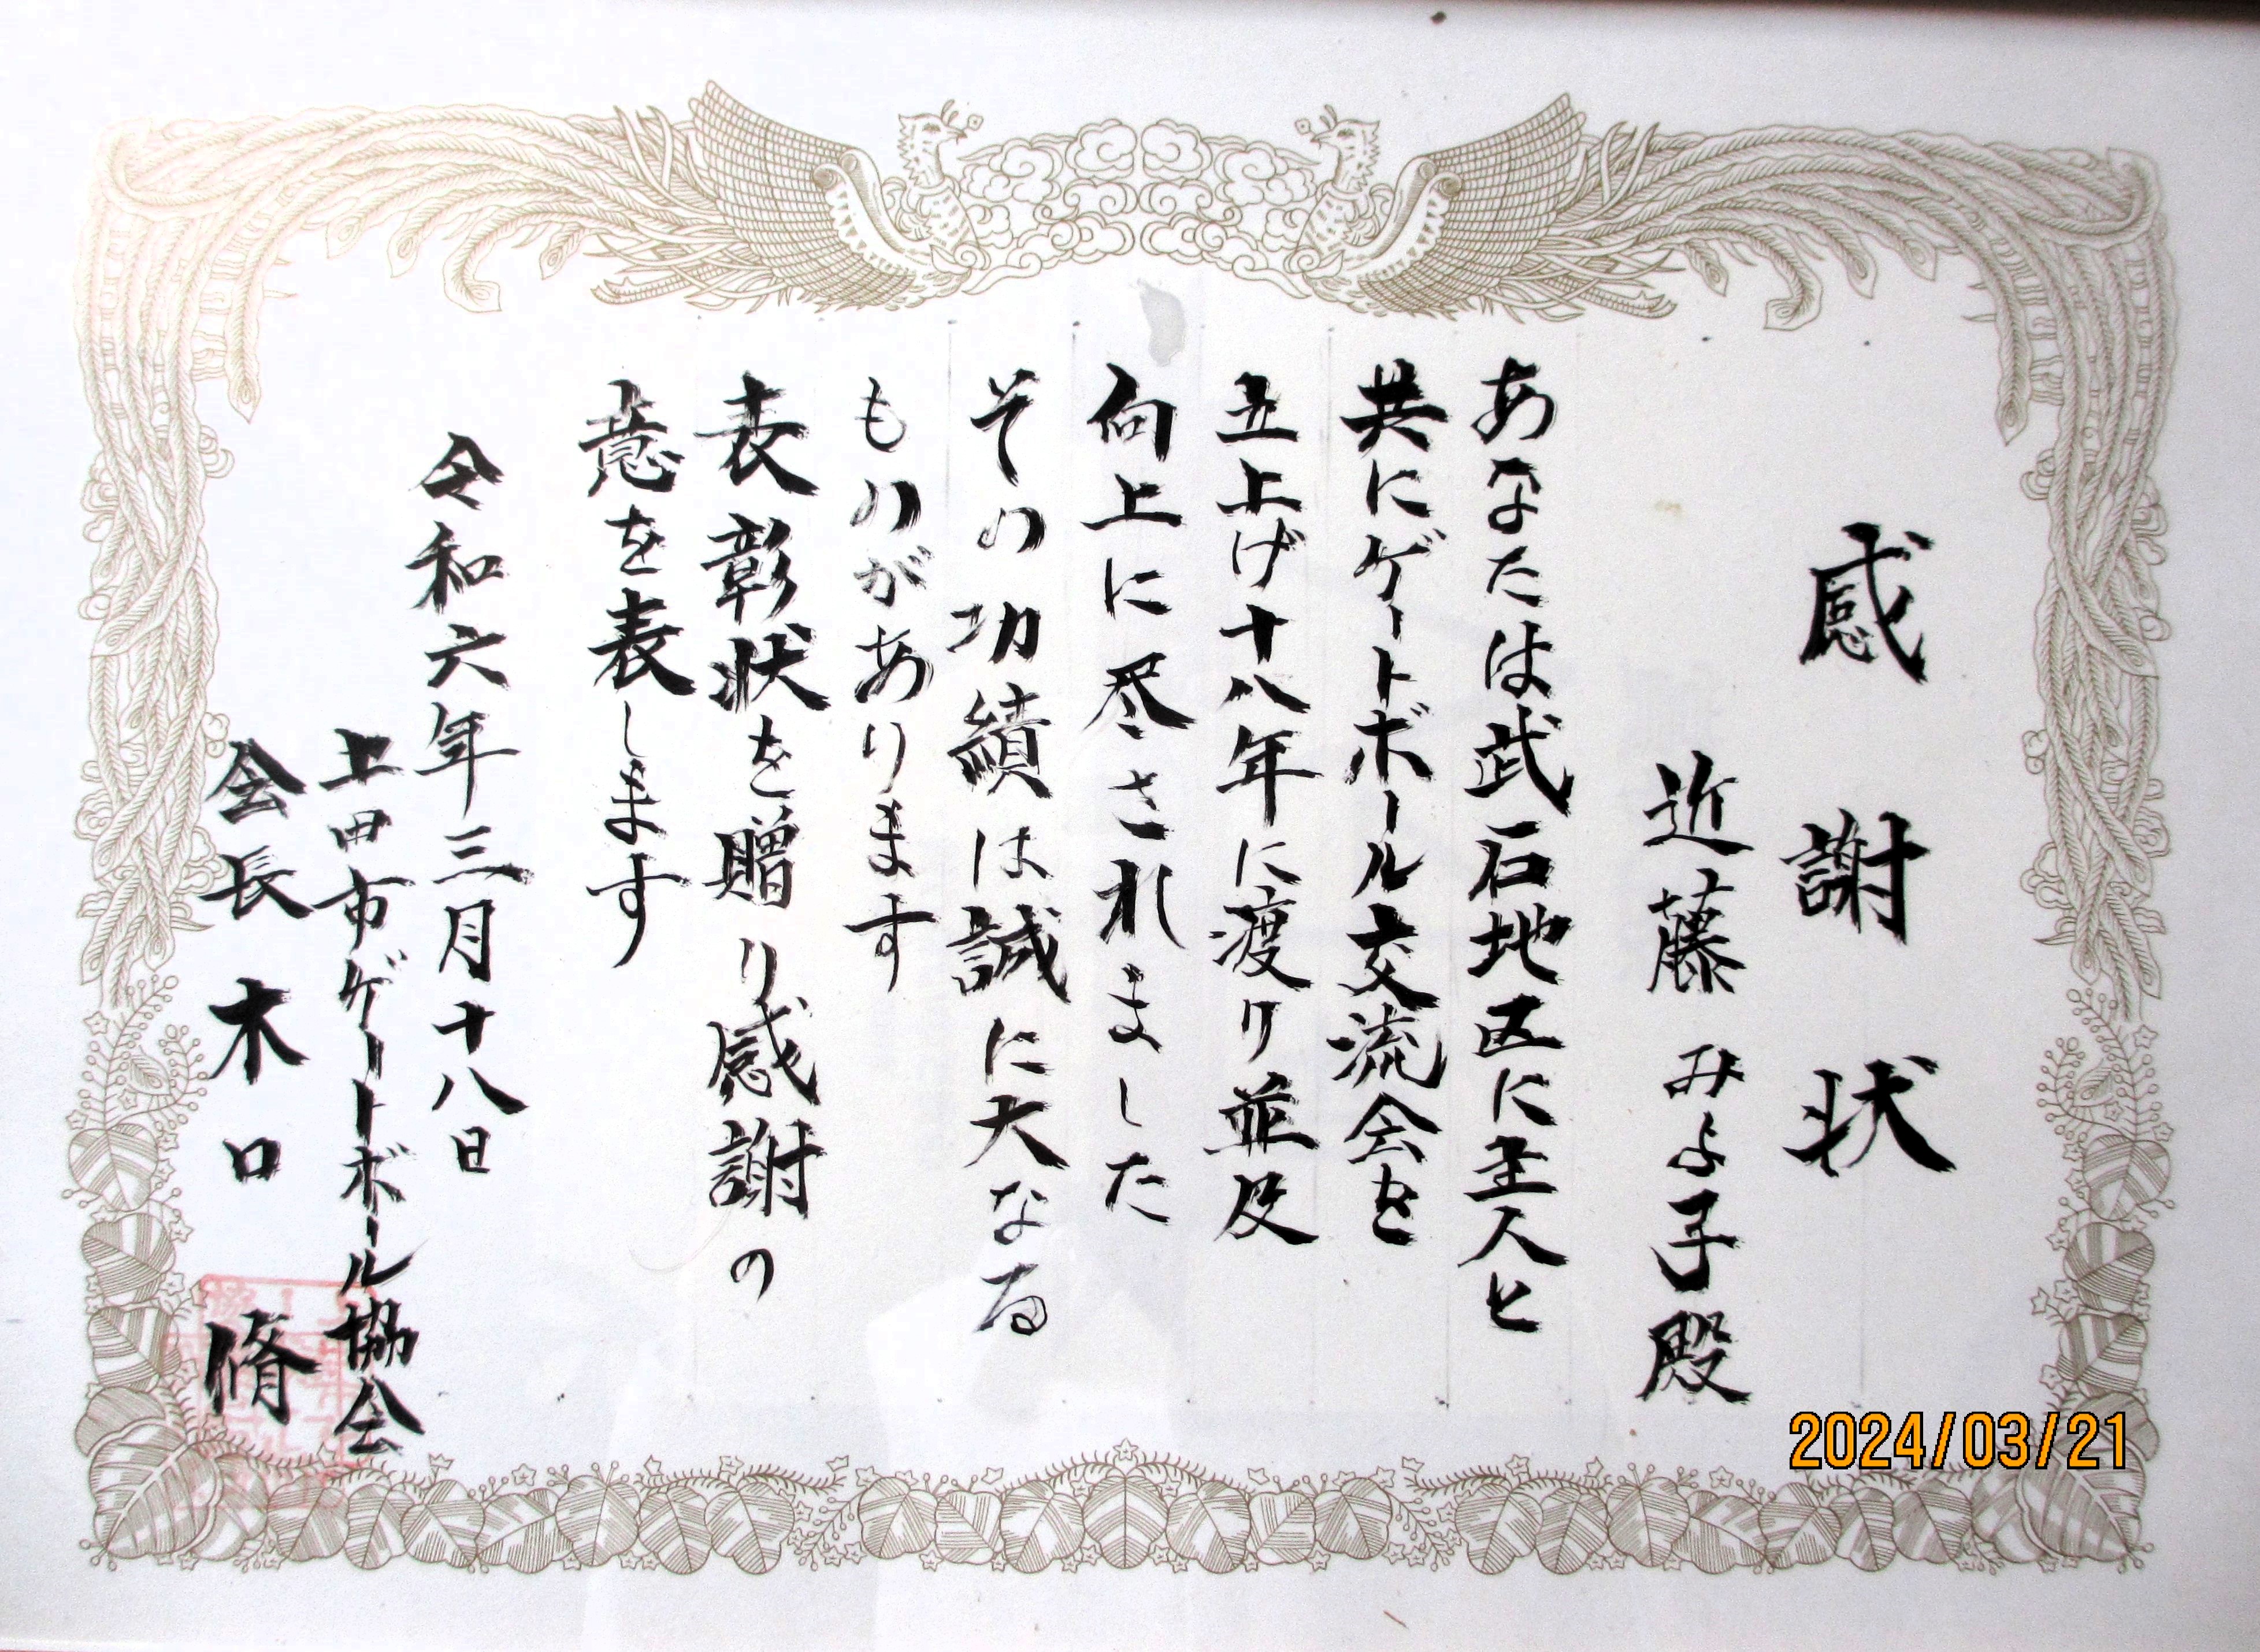 感謝状
近藤みよ子殿
あなたは武石地区に主人と
共にゲートボール交流会を
立上げ十八年に渡り並及
向上に尽されました
その功績は誠に大なる
ものがあります
表彰状を贈り感謝の
意を表します
令和六年三月十八日
上田市ゲートボール協会
会長木口脩
2024/03/21